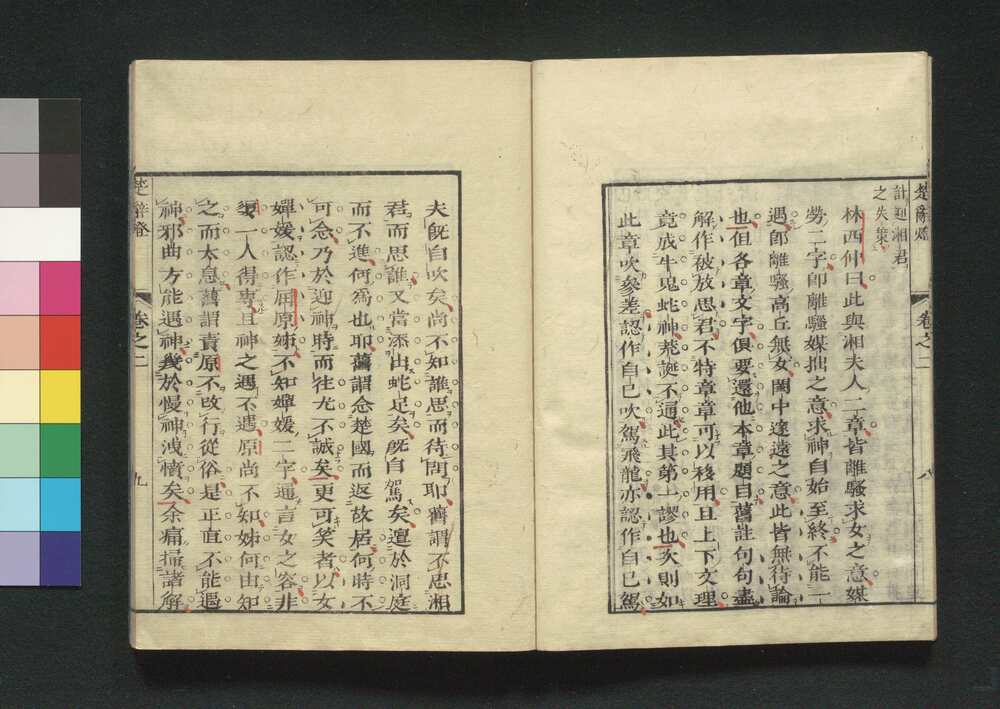 楚辭燈
卷之二
八
計邀湘君
之失策
林西仲曰此與湘夫人二章皆離騷求女之意媒
勞二字卽離騷媒拙之意求神自始至終不能一
遇卽離騷高丘無女閨中邃遠之意此皆無待論
也但各章文字俱要還他本章題目舊註句句盡
解作被放思君不特章章可以移用且上下文理
竟成牛鬼蛇神荒誕不通此其第一謬也次則如
此章吹參差認作自己吹駕飛龍亦認作自己駕
夫旣自吹矣尚不知誰思而待問耶舊謂不思湘
君而思誰又當添出蛇足矣旣自駕矣邅於洞庭
而不進何爲也耶舊謂念楚國而返故居何時不
可念乃於迎神時而往尤不誠矣更可笑者以女
嬋媛認作屈原姊不知嬋媛二字通言女之容非
嬃一人得專且神之遇不遇原尚不知姊何由知
之而太息舊謂責原不改行從俗是正直不能遇
神邪曲方能遇神幾於慢神洩憤矣余痛掃諸解
楚辭燈
卷之二
九